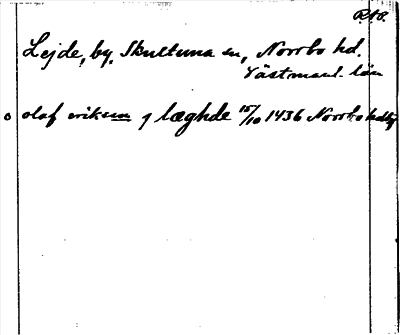 RAÖ.
Lejde, by, Skultuna sn, Norrbo hd.
Västmanl. län
o olaf erikson j læghde 15/10 1436 Norrbo hdtg